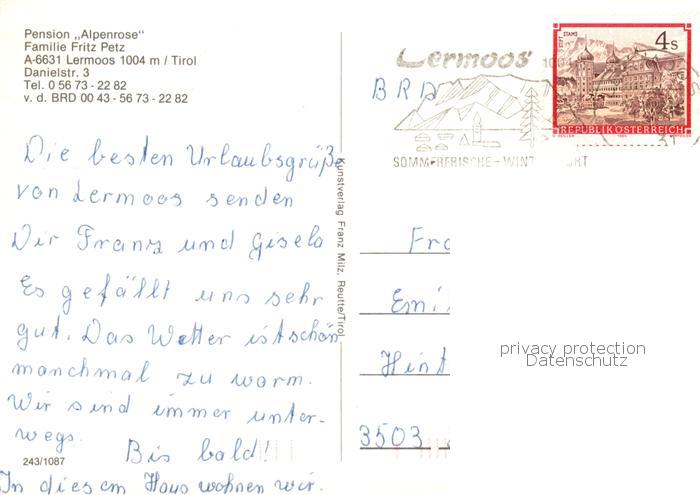 Pension „Alpenrose"
Familie Fritz Petz
A-6631 Lermoos 1004 m / Tirol
Danielstr. 3
Tel. 0 56 73 - 22 82
v. d. BRD 00 43 - 56 73 - 22 82
Die besten Urlaubsgrüße
von Lermoos senden
Dir Franz und Gisela
Es gefällt uns sehr
gut. Das Wetter ist schön
manchmal zu warm.
Wir sind immer unter-
wegs. Bis bald!
243/1087
In diesem Haus wohnen wir.
Kunstverlag Franz Milz, Reutte/Tirol
Lermoos
SOMMERFRISCHE - WINT ORT
STIFT STAMS
4 S
REPUBLIK ÖSTERREICH
BRD
Fra
Emi
Hint
3503
privacy protection
Datenschutz